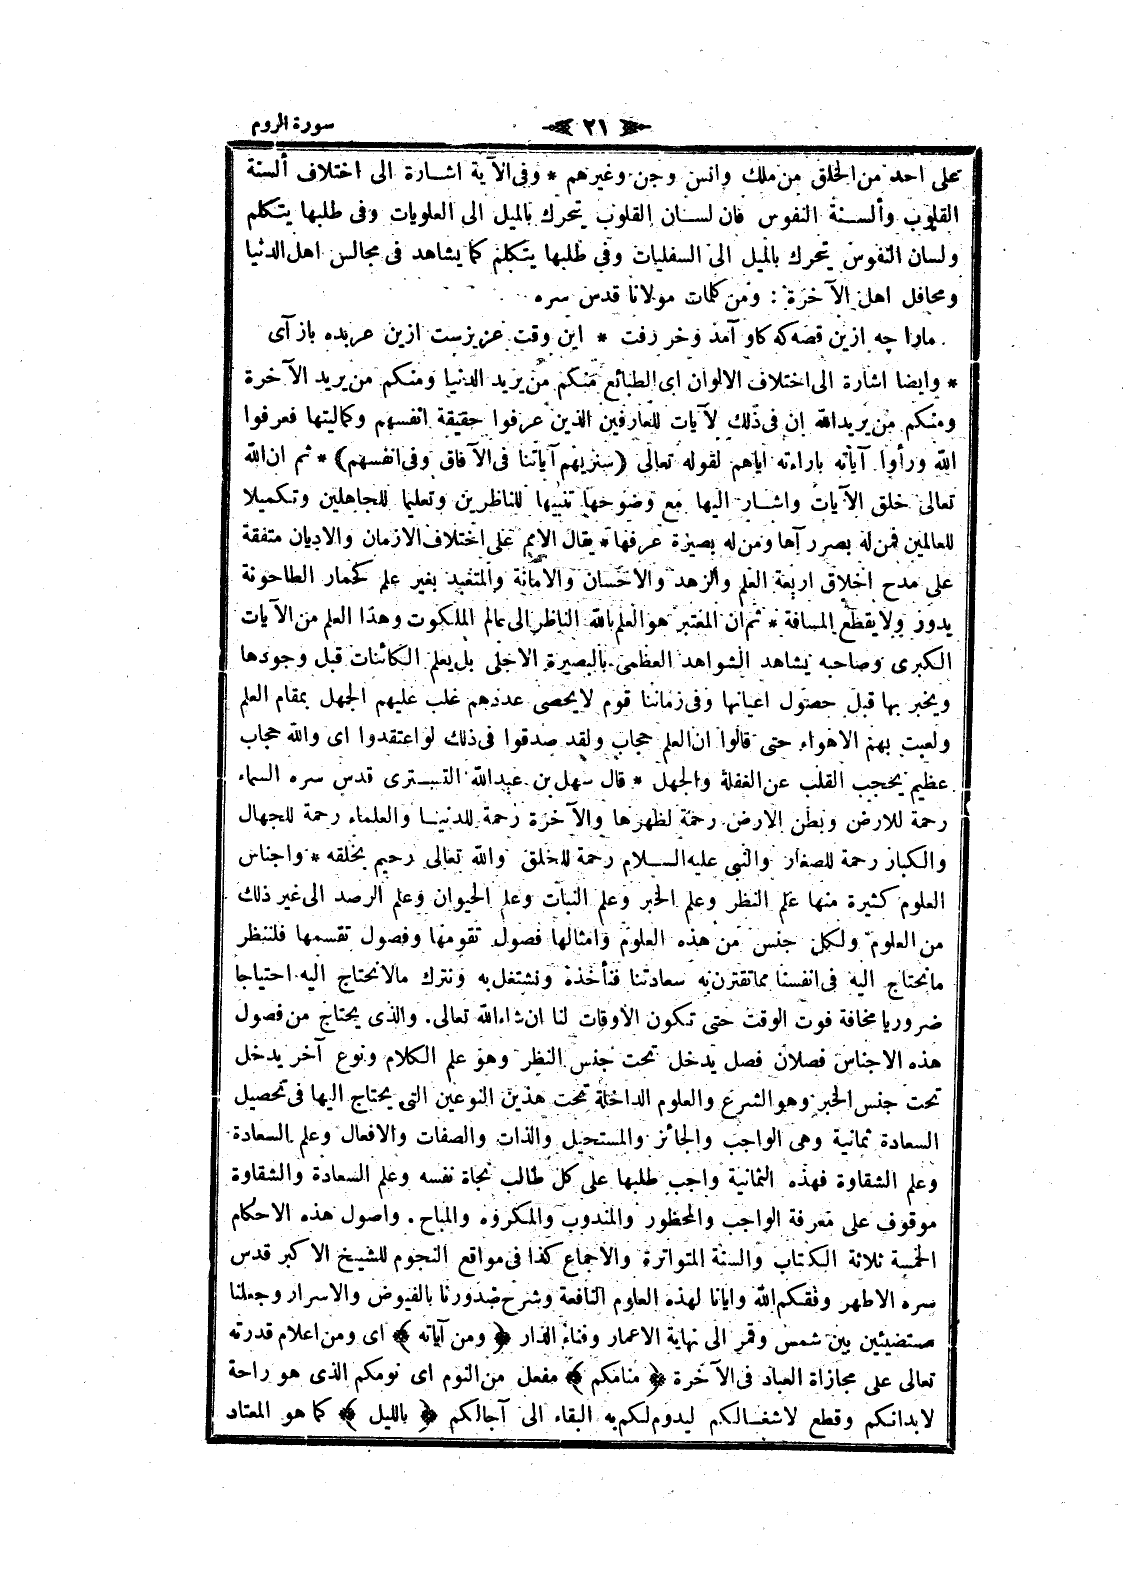 سورة الروم ﴿ ٢١ ﴾
على احد من الخلق من ملك وانس وجن وغيرهم * وفى الآية اشارة الى اختلاف ألسنة
القلوب وألسنة النفوس فان لسان القلوب يتحرك بالميل الى العلويات وفى طلبها يتكلم
ولسان النفوس يتحرك بالميل الى السفليات وفى طلبها يتكلم كما يشاهد فى مجالس اهل الدنيا
ومحافل اهل الآخرة : ومن كلمات مولانا قدس سره
مارا چه ازين قصه كه كاو آمد وخر رفت * اين وقت عزيزست ازين عربده باز آى
* وايضا اشارة الى اختلاف الالوان اى الطبائع منكم من يريد الدنيا ومنكم من يريد الآخرة
ومنكم من يريد الله ان فى ذلك لآيات للعارفين الذين عرفوا حقيقة انفسهم وكماليتها فعرفوا
الله ورأوا آياته باراءته اياهم لقوله تعالى (سنريهم آياتنا فى الآفاق وفى انفسهم) * ثم ان الله
تعالى خلق الآيات واشار اليها مع وضوحها تنبيها للناظرين وتعليما للجاهلين وتكميلا
للعالمين فمن له بصر رآها ومن له بصيرة عرفها * يقال الامم على اختلاف الازمان والاديان متفقة
على مدح اخلاق اربعة العلم والزهد والاحسان والامانة والمتعبد بغير علم كحمار الطاحونة
يدور ولا يقطع المسافة * ثم ان المعتبر هو العلم بالله الناظر الى عالم الملكوت وهذا العلم من الآيات
الكبرى وصاحبه يشاهد الشواهد العظمى بالبصيرة الاجلى بل يعلم الكائنات قبل وجودها
ويخبر بها قبل حصول اعيانها وفى زماننا قوم لا يحصى عددهم غلب عليهم الجهل بمقام العلم
ولعبت بهم الاهواء حتى قالوا ان العلم حجاب ولقد صدقوا فى ذلك لو اعتقدوا اى والله حجاب
عظيم يحجب القلب عن الغفلة والجهل * قال سهل بن عبدالله التسترى قدس سره السماء
رحمة للارض وبطن الارض رحمة لظهرها والآخرة رحمة للدنيا والعلماء رحمة للجهال
والكبار رحمة للصغار والنبى عليه السلام رحمة للخلق والله تعالى رحيم بخلقه * واجناس
العلوم كثيرة منها علم النظر وعلم الخبر وعلم النبات وعلم الحيوان وعلم الرصد الى غير ذلك
من العلوم ولكل جنس من هذه العلوم وامثالها فصول تقومها وفصول تقسمها فلننظر
ما نحتاج اليه فى انفسنا مما تقترن به سعادتنا فنأخذه ونشتغل به ونترك مالا نحتاج اليه احتياجا
ضروريا مخافة فوت الوقت حتى تكون الأوقات لنا ان شاء الله تعالى. والذى يحتاج من فصول
هذه الاجناس فصلان فصل يدخل تحت جنس النظر وهو علم الكلام ونوع آخر يدخل
تحت جنس الخبر وهو الشرع والعلوم الداخلة تحت هذين النوعين التى يحتاج اليها فى تحصيل
السعادة ثمانية وهى الواجب والجائز والمستحيل والذات والصفات والافعال وعلم السعادة
وعلم الشقاوة فهذه الثمانية واجب طلبها على كل طالب نجاة نفسه وعلم السعادة والشقاوة
موقوف على معرفة الواجب والمحظور والمندوب والمكروه والمباح. واصول هذه الاحكام
الخمسة ثلاثة الكتاب والسنة المتواترة والاجماع كذا فى مواقع النجوم للشيخ الاكبر قدس
سره الاطهر وفقكم الله وايانا لهذه العلوم النافعة وشرح صدورنا بالفيوض والاسرار وجعلنا
مستضيئين بين شمس وقمر الى نهاية الاعمار وفناء الدار ﴿ ومن آياته ﴾ اى ومن اعلام قدرته
تعالى على مجازاة العباد فى الآخرة ﴿ منامكم ﴾ مفعل من النوم اى نومكم الذى هو راحة
لابدانكم وقطع لاشغالكم ليدوم لكم به البقاء الى آجالكم ﴿ بالليل ﴾ كما هو المعتاد